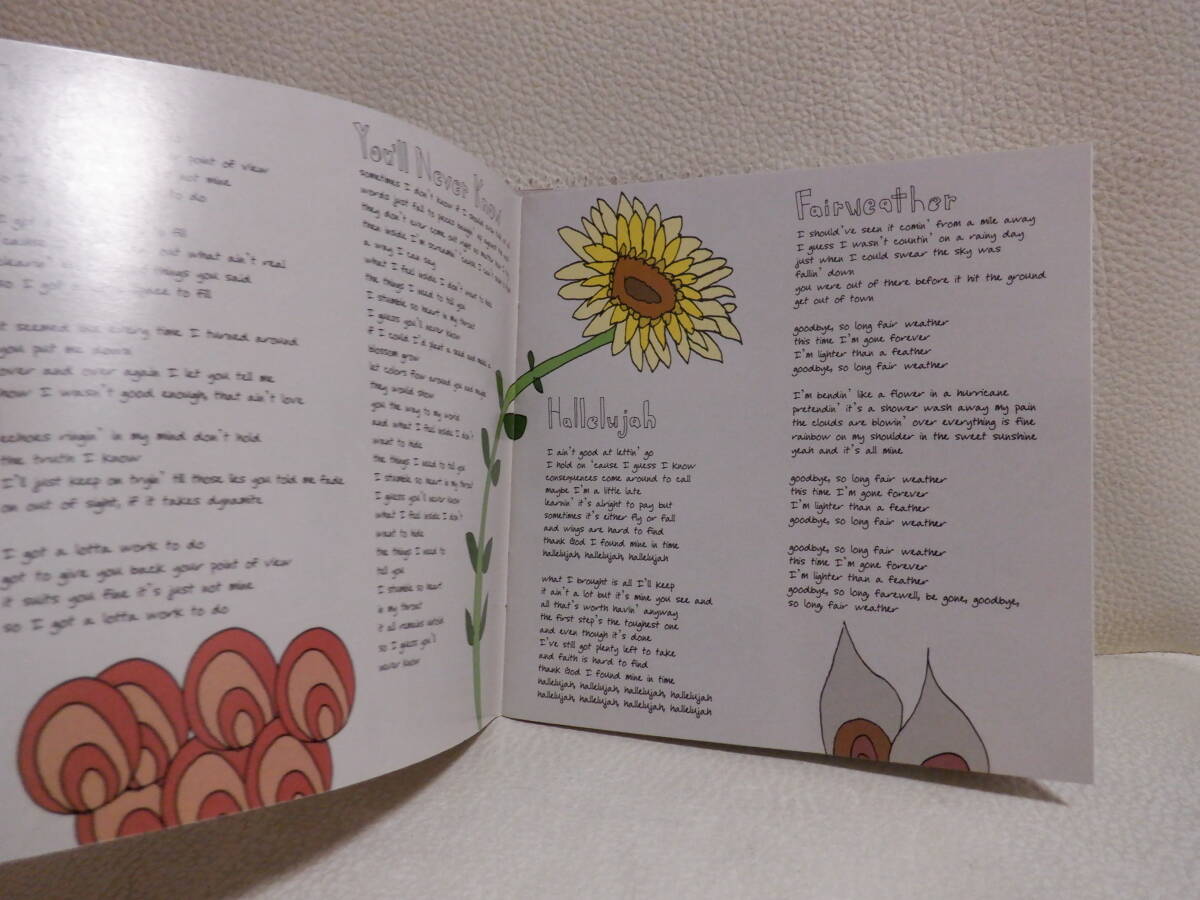 point of view
not mine
to do
I got
fill
'cause
out what ain't real
things you said
so I got
to fill
it seemed like every time I turned around
you put me down
over and over again I let you tell me
how I wasn't good enough, that ain't love
echoes ringin' in my mind don't hold
the truth I know
I'll just keep on tryin' till those lies you told me fade
on out of sight, if it takes dynamite
I got a lotta work to do
got to give you back your point of view
it suits you fine it's just not mine
so I got a lotta work to do
You'll Never Know
sometimes I don't know if I should
words just fall to pieces
they don't ever come out right no matter
then inside I'm screamin' 'cause I can't
a way I can say
what I feel inside I don't want to hide
the things I need to tell you
I stumble so heart in my throat
I guess you'll never know
if I could I'd plant a seed and make a
blossom grow
let colors flow around you and maybe
they would show
you the way to my world
and what I feel inside I don't
want to hide
the things I need to tell you
I stumble so heart in my throat
I guess you'll never know
what I feel inside I don't
want to hide
the things I need to
tell you
I stumble so heart
in my throat
it all remains
so I guess you'll
never know
Hallelujah
I ain't good at lettin' go
I hold on 'cause I guess I know
consequences come around to call
maybe I'm a little late
learnin' it's alright to pay but
sometimes it's either fly or fall
and wings are hard to find
thank God I found mine in time
hallelujah, hallelujah, hallelujah
what I brought is all I'll keep
it ain't a lot but it's mine you see and
all that's worth havin' anyway
the first step's the toughest one
and even though it's done
I've still got plenty left to take
and faith is hard to find
thank God I found mine in time
hallelujah, hallelujah, hallelujah, hallelujah
hallelujah, hallelujah, hallelujah, hallelujah
Fairweather
I should've seen it comin' from a mile away
I guess I wasn't countin' on a rainy day
just when I could swear the sky was
fallin' down
you were out of there before it hit the ground
get out of town
goodbye, so long fair weather
this time I'm gone forever
I'm lighter than a feather
goodbye, so long fair weather
I'm bendin' like a flower in a hurricane
pretendin' it's a shower wash away my pain
the clouds are blowin' over everything is fine
rainbow on my shoulder in the sweet sunshine
yeah and it's all mine
goodbye, so long fair weather
this time I'm gone forever
I'm lighter than a feather
goodbye, so long fair weather
goodbye, so long fair weather
this time I'm gone forever
I'm lighter than a feather
goodbye, so long, farewell, be gone, goodbye,
so long, fair weather